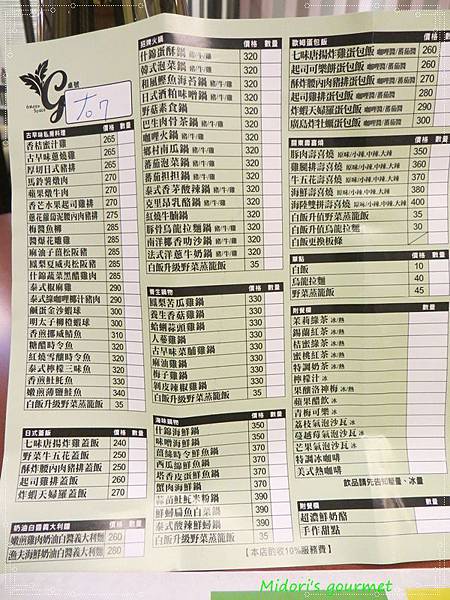 桌號
右7
古早味私廚料理 價格 數量
香桔蜜汁雞 265
古早味蔥燒雞 265
厚切日式豬排 265
馬鈴薯燉肉 265
蘋果燉牛肉 265
香芒水果起司雞排 265
275
梅醬魚柳 265
醬爆花雕雞 265
麻油子薑松阪豬 265
鳳梨夏威夷松阪豬 265
什錦蔬菜黑醋雞肉 265
泰式椒麻雞 290
泰式綠咖哩椰汁豬肉 290
鹹蛋金沙蝦球 290
明太子柳橙蝦球 290
香煎挪威鯖魚 310
糖醋時令魚 310
紅燒雪釀時令魚 310
泰式檸檬三味魚 310
香煎魟魠魚 330
嫩煎薄鹽鮭魚 340
白飯升級野菜蒸籠飯 35
日式蓋飯 價格 數量
七味唐揚炸雞蓋飯 240
野菜牛五花蓋飯 250
酥炸腰內肉豬排蓋飯 250
起司雞排蓋飯 270
炸蝦天婦羅蓋飯 270
奶油白醬義大利麵 價格 數量
嫩煎雞肉奶油白醬義大利麵 260
漁夫海鮮奶油白醬義大利麵 280
招牌火鍋 價格 數量
什錦蛋酥鍋 豬/牛/雞 320
韓式泡菜鍋 豬/牛/雞 320
和風鰹魚海苔鍋 豬/牛/雞 320
日式酒粕味噌鍋 豬/牛/雞 320
野菇素食鍋 320
巴生肉骨茶鍋 豬/牛/雞 320
咖哩火鍋 豬/牛/雞 320
鄉村南瓜鍋 豬/牛/雞 320
番茄泡菜鍋 豬/牛/雞 320
番茄蔬菜鍋 豬/牛/雞 320
泰式香茅酸辣鍋 豬/牛/雞 320
克里昂乳酪鍋 豬/牛/雞 320
紅燒牛腩鍋 320
豚骨烏龍拉麵鍋 豬/牛/雞 320
南洋椰香叻沙鍋 豬/牛/雞 320
法式洋蔥牛奶鍋 豬/牛/雞 320
白飯升級野菜蒸籠飯 35
養生鍋物 價格 數量
鳳梨苦瓜雞鍋 330
養生香菇雞鍋 330
蛤蜊蒜頭雞鍋 330
人蔘雞鍋 330
古早味菜脯雞鍋 330
麻油雞鍋 330
梅子雞鍋 330
剝皮辣椒雞鍋 330
白飯升級野菜蒸籠飯 35
海味鍋物 價格 數量
什錦海鮮鍋 390
味噌海鮮鍋 390
薑絲時令鮮魚鍋 390
西瓜綿鮮魚鍋 390
塔香皮蛋鮮魚鍋 390
蟹肉海鮮鍋 390
蒜苗魟魠米粉鍋 390
鮮鱘扁魚白菜鍋 390
泰式酸辣鮮鱘鍋 390
白飯升級野菜蒸籠飯 35
歐姆蛋包飯 價格 數量
七味唐揚炸雞蛋包飯 咖哩醬/蕃茄醬 260
起司可樂餅蛋包飯 咖哩醬/蕃茄醬 260
酥炸腰內肉豬排蛋包飯 咖哩醬/蕃茄醬 270
起司雞排蛋包飯 咖哩醬/蕃茄醬 290
炸蝦天婦羅蛋包飯 咖哩醬/蕃茄醬 290
廣島炸牡蠣蛋包飯 咖哩醬/蕃茄醬 290
關東壽喜燒 價格 數量
豚肉壽喜燒 原味/小辣.中辣.大辣 350
雞腿排壽喜燒 原味/小辣.中辣.大辣 360
牛五花壽喜燒 原味/小辣.中辣.大辣 380
海鮮壽喜燒 原味/小辣.中辣.大辣 390
海陸雙拼壽喜燒 原味/小辣.中辣.大辣 400
白飯升值野菜蒸籠飯 35
白飯升值烏龍拉麵 30
白飯更換板條
單點 價格 數量
白飯 10
烏龍拉麵 40
野菜蒸籠飯 45
附餐飲 數量
茉莉綠茶 冰/熱
錫蘭紅茶 冰/熱
桔蜜綠茶 冰/熱
蜜桃紅茶 冰/熱
特調奶茶 冰/熱
檸檬汁 冰
果釀洛神梅 冰/熱
蘋果醋飲 冰
青梅可樂 冰
荔枝氣泡沙瓦 冰
蔓越莓氣泡沙瓦 冰
芒果氣泡沙瓦 冰
特調冰咖啡
美式熱咖啡
飲品請先告知糖量、冰量
附餐點 數量
超濃鮮奶酪
手作甜點
【本店酌收10%服務費】
Midori's gourmet